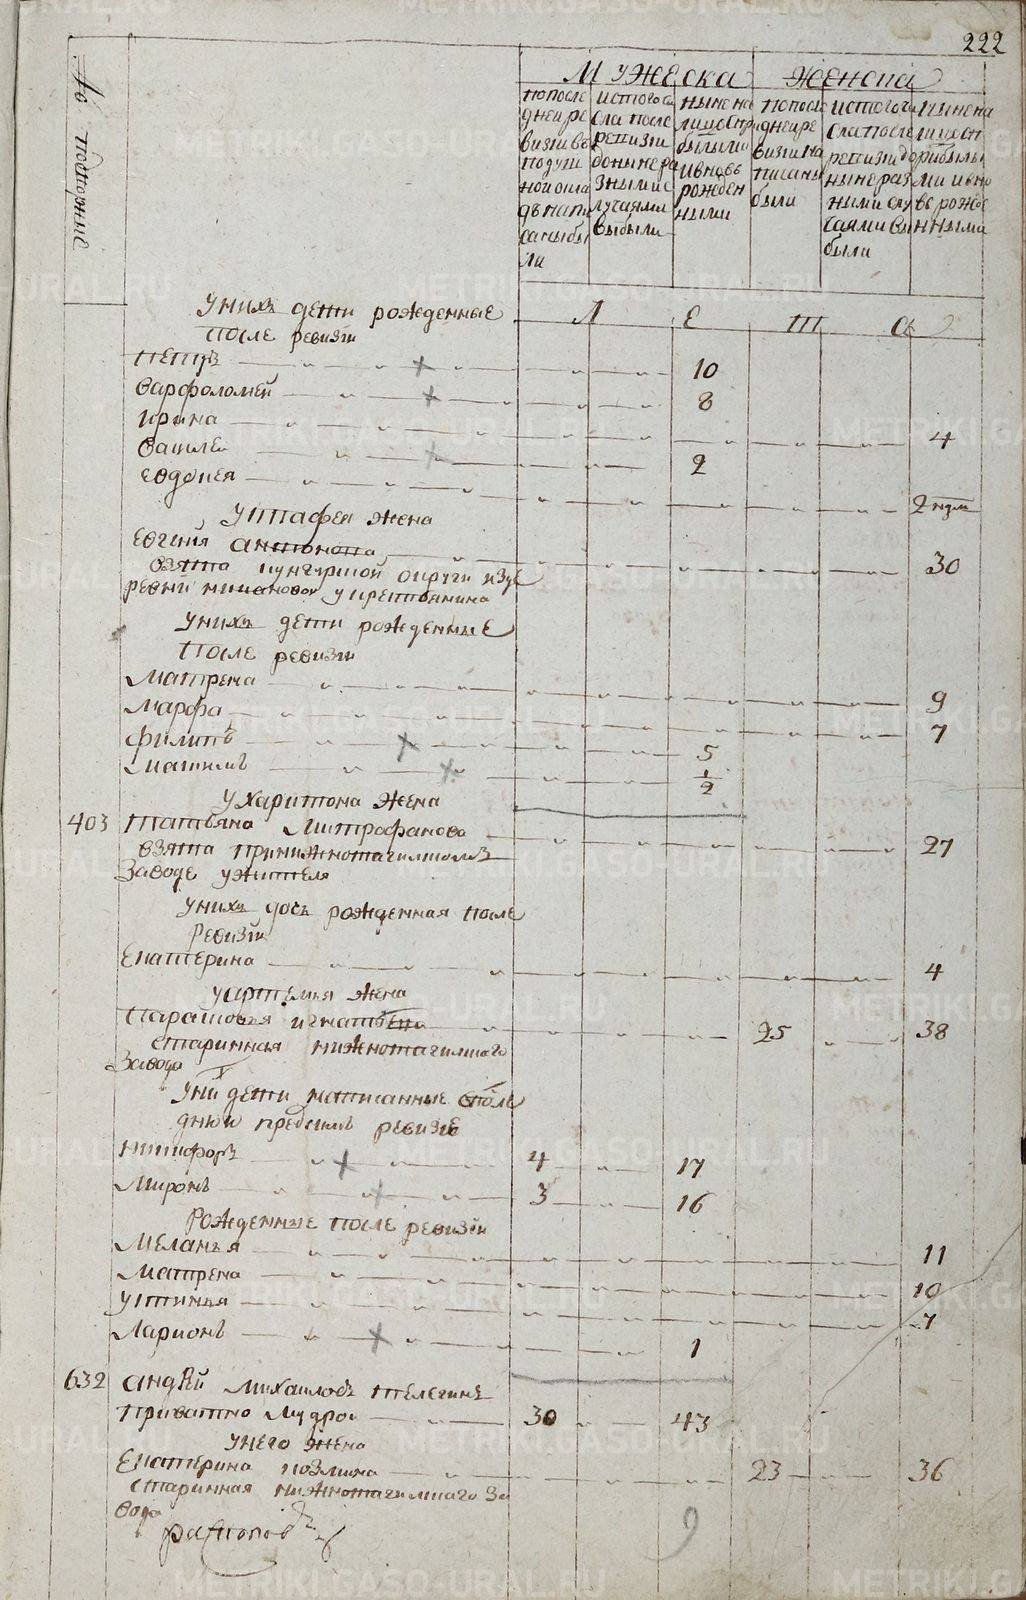 222
№ подворные
Мужеска
Женска
по после
дней ре
визии въ
подуш
ной окла
дъ напи
саны бы
ли
истого чи
сла после
ревизии
до ныне ра
зными с
лучаями
выбыли
ныне на
лицо с при
былыми
и вновь
рожден
ными
по после
дней ре
визии на
писаны
были
истого чи
сла после
ревизии до
ныне раз
ными слу
чаями вы
были
ныне на
лицо с п
рибылы
ми и вно
вь рожде
нными
Л Е Т А
у нихъ дети рожденные
после ревизiи
Петръ 10
Варфоломей 8
Ирина 4
Василей 2
Евдокея 2 нзм
у Тафея жена
Евгения Антонова 30
взята Кунгурской округи из де
ревни у крестьянина
у нихъ дети рожденные
после ревизiи
Матрена 9
Марфа 7
Филипъ 5
Максимъ 1/2
у Харитона жена
403 Татьяна Митрофанова 27
взята при нижнотагилскомъ
заводе у жителя
у нихъ дочь рожденная после
ревизiи
Екатерина 4
у Артемья жена
Парасковья Игнатьева 25 38
старинная нижнотагилскаго
завода
у ни дети написанные в после
дной пред симъ ревизiе
Никифоръ 4 17
Миронъ 3 16
Рожденные после ревизiи
Меланья 11
Матрена 10
Устинья 7
Ларионъ 1
632 Андрей Михаиловъ Телегинъ
Приватно Мудрой 30 43
у него жена
Екатерина Козмина 23 36
старинная нижнотагилскаго за
вода
9
METRIKI.GASO-URAL.RU